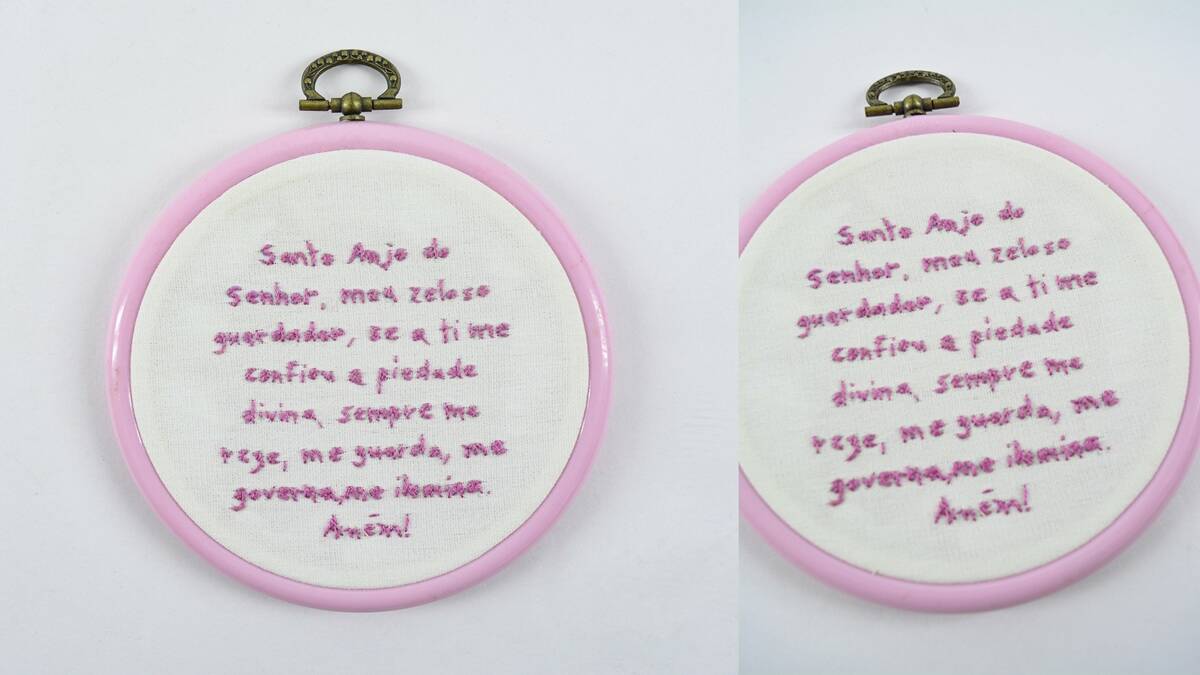 Santo Anjo do
Senhor, meu zeloso
guardador, se a ti me
confiou a piedade
divina, sempre me
rege, me guarda, me
governa, me ilumina.
Amém!
Santo Anjo do
Senhor, meu zeloso
guardador, se a ti me
confiou a piedade
divina, sempre me
rege, me guarda, me
governa, me ilumina.
Amém!